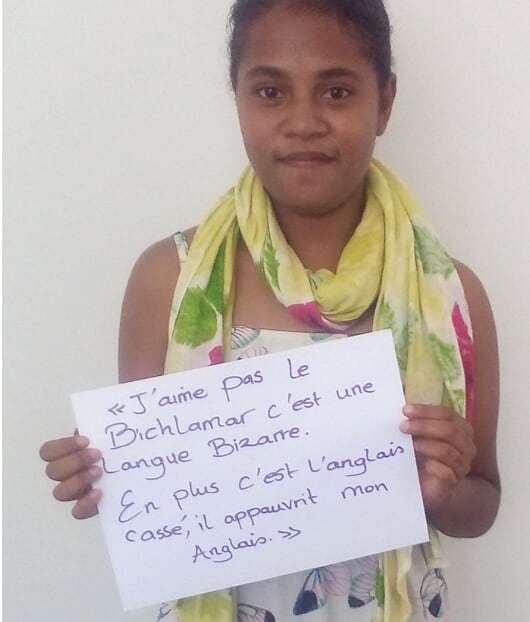 « J'aime pas le
Bichlamar c'est une
langue Bizarre.
En plus c'est l'anglais
cassé, il appauvrit mon
Anglais. »